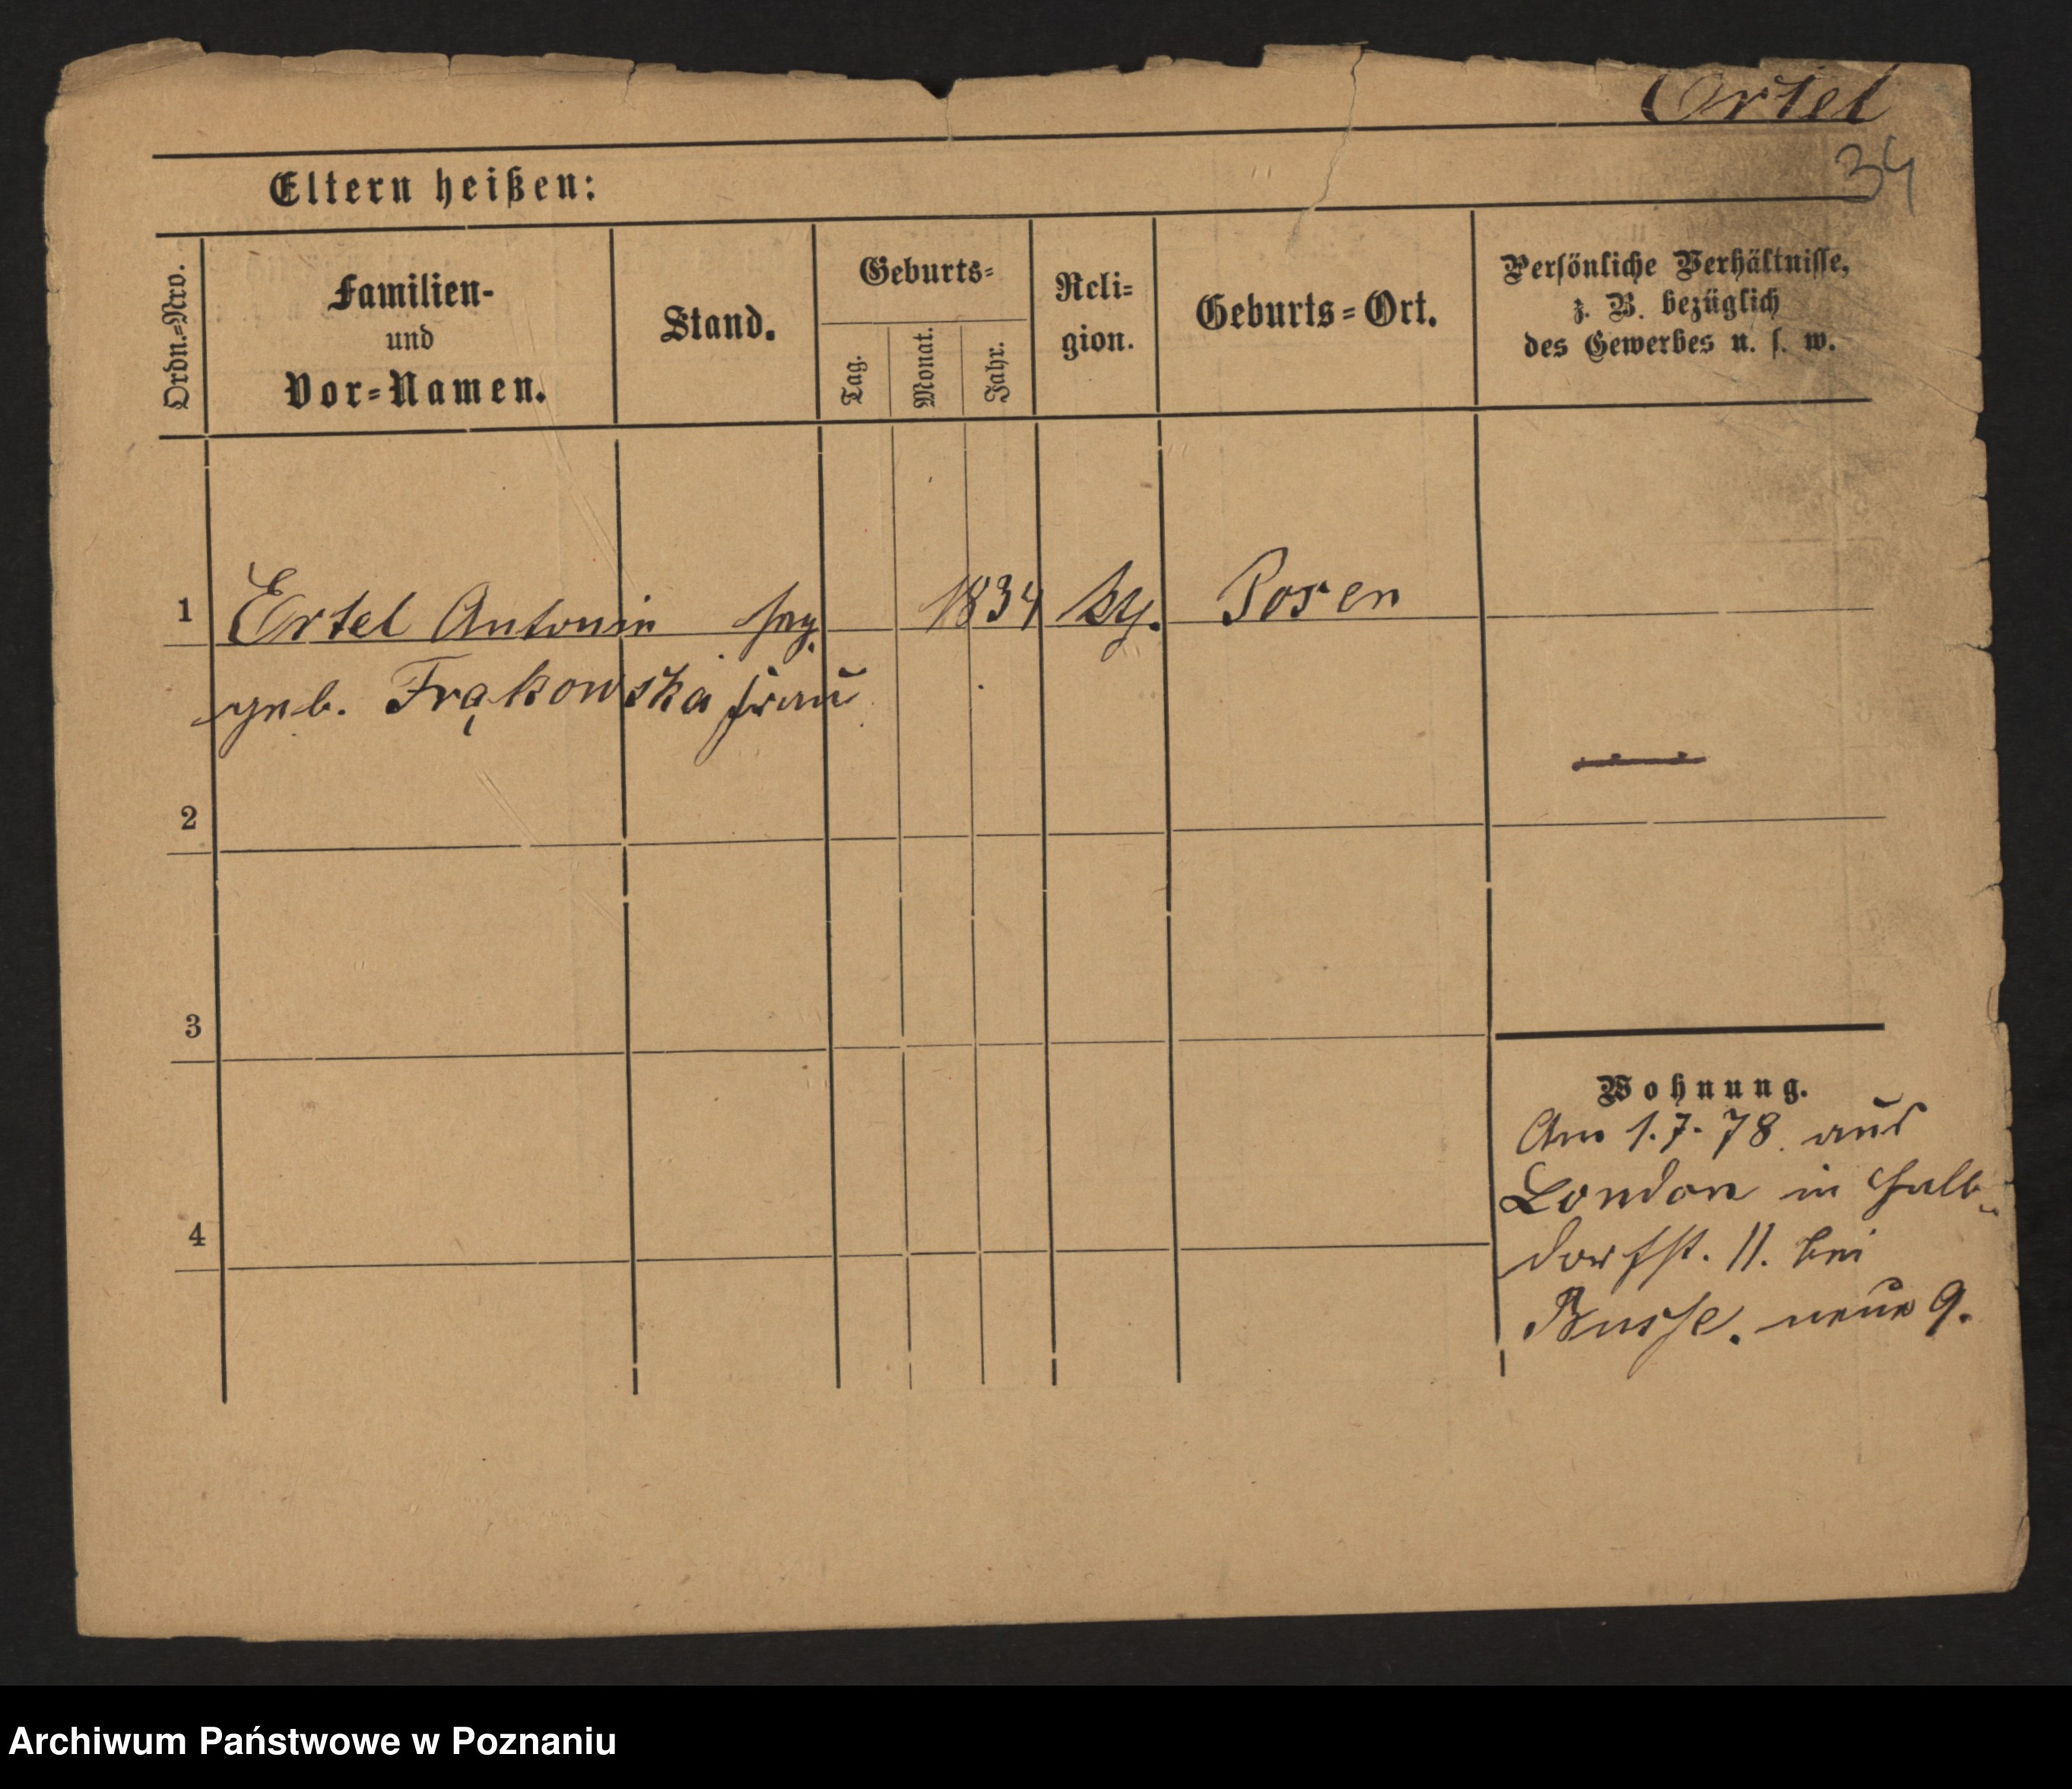 Ertel
34
Eltern heißen:
Ordn.=Nro.
Familien-
und
Vor=Namen.
Stand.
Geburts=
Tag.
Monat.
Jahr.
Reli=
gion.
Geburts=Ort.
Persönliche Verhältnisse,
z. B. bezüglich
des Gewerbes u. s. w.
1 Ertel Antonie 1834 Posen
geb. Frąkowska frau
2
3
4
Wohnung.
Am 1.7.78. aus
London in Halb
dorfst. 11. bei
Busse. neue 9.
Archiwum Państwowe w Poznaniu